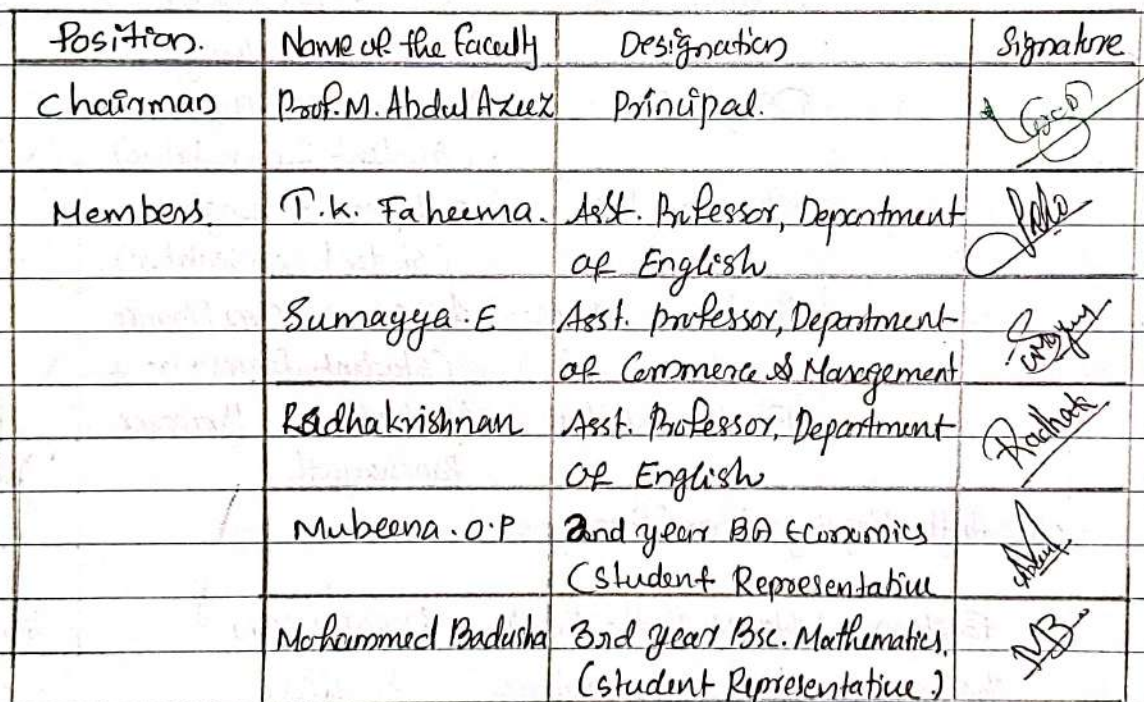 Position. Name of the Faculty Designation Signature
Chairman Prof. M. Abdul Azeez Principal.
Members. T.K. Faheema. Asst. Professor, Department
of English
Sumayya . E Asst. professor, Department
of Commerce & Management
Radhakrishnan Asst. Professor, Department Radhak
of English
Mubeena . O.P 2nd year BA Economics
(Student Representative
Mohammed Badusha 3rd year Bsc. Mathematics. MB
(student Representative.)